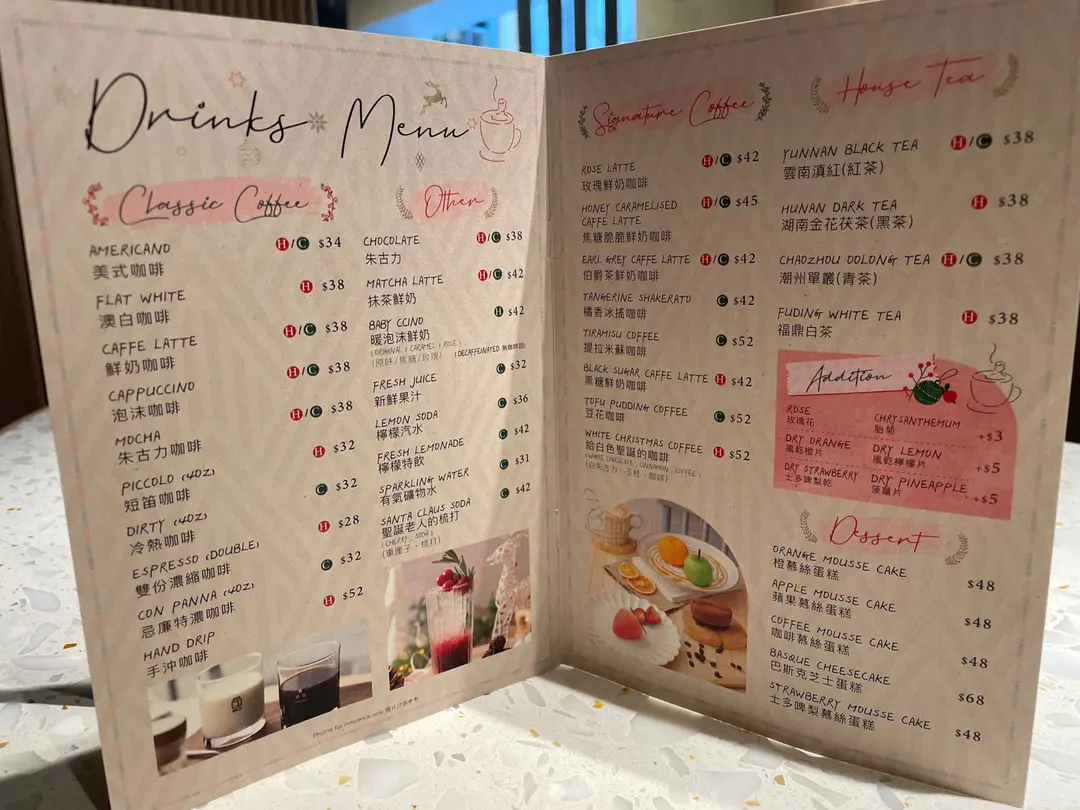 Drinks Menu
Classic Coffee
AMERICANO H/C $34
美式咖啡
FLAT WHITE H $38
澳白咖啡
CAFFE LATTE H/C $38
鮮奶咖啡
CAPPUCCINO H/C $38
泡沫咖啡
MOCHA H/C $38
朱古力咖啡
PICCOLO (4OZ) H $32
短笛咖啡
DIRTY (4OZ) C $32
冷熱咖啡
ESPRESSO (DOUBLE) H $28
雙份濃縮咖啡
CON PANNA (4OZ) C $32
忌廉特濃咖啡
HAND DRIP H $52
手沖咖啡
Other
CHOCOLATE H/C $38
朱古力
MATCHA LATTE H/C $42
抹茶鮮奶
BABY CCINO H $42
暖泡沫鮮奶
(ORIGINAL / CARAMEL / ROSE)
(原味/焦糖/玫瑰) (DECAFFEINATED 無咖啡因)
FRESH JUICE C $32
新鮮果汁
LEMON SODA C $36
檸檬汽水
FRESH LEMONADE C $42
檸檬特飲
SPARKLING WATER C $31
有氣礦物水
SANTA CLAUS SODA C $42
聖誕老人的梳打
(CHERRY, SODA)
(車厘子、梳打)
Photos for reference only 圖片只供參考
Signature Coffee
ROSE LATTE H/C $42
玫瑰鮮奶咖啡
HONEY CARAMELISED
CAFFE LATTE H/C $45
焦糖脆脆鮮奶咖啡
EARL GREY CAFFE LATTE H/C $42
伯爵茶鮮奶咖啡
TANGERINE SHAKERATO C $42
橘香冰搖咖啡
TIRAMISU COFFEE C $52
提拉米蘇咖啡
BLACK SUGAR CAFFE LATTE H $42
黑糖鮮奶咖啡
TOFU PUDDING COFFEE C $52
豆花咖啡
WHITE CHRISTMAS COFFEE H $52
給白色聖誕的咖啡
(WHITE CHOCOLATE, CINNAMON, COFFEE)
(白朱古力、玉桂、咖啡)
House Tea
YUNNAN BLACK TEA H/C $38
雲南滇紅(紅茶)
HUNAN DARK TEA H $38
湖南金花茯茶(黑茶)
CHAOZHOU OOLONG TEA H/C $38
潮州單叢(青茶)
FUDING WHITE TEA H $38
福鼎白茶
Addition
ROSE CHRYSANTHEMUM +$3
玫瑰花 胎菊
DRY ORANGE DRY LEMON +$5
風乾橙片 風乾檸檬片
DRY STRAWBERRY DRY PINEAPPLE +$5
士多啤梨乾 菠蘿片
Dessert
ORANGE MOUSSE CAKE $48
橙慕絲蛋糕
APPLE MOUSSE CAKE $48
蘋果慕絲蛋糕
COFFEE MOUSSE CAKE $48
咖啡慕絲蛋糕
BASQUE CHEESECAKE $68
巴斯克芝士蛋糕
STRAWBERRY MOUSSE CAKE $48
士多啤梨慕絲蛋糕